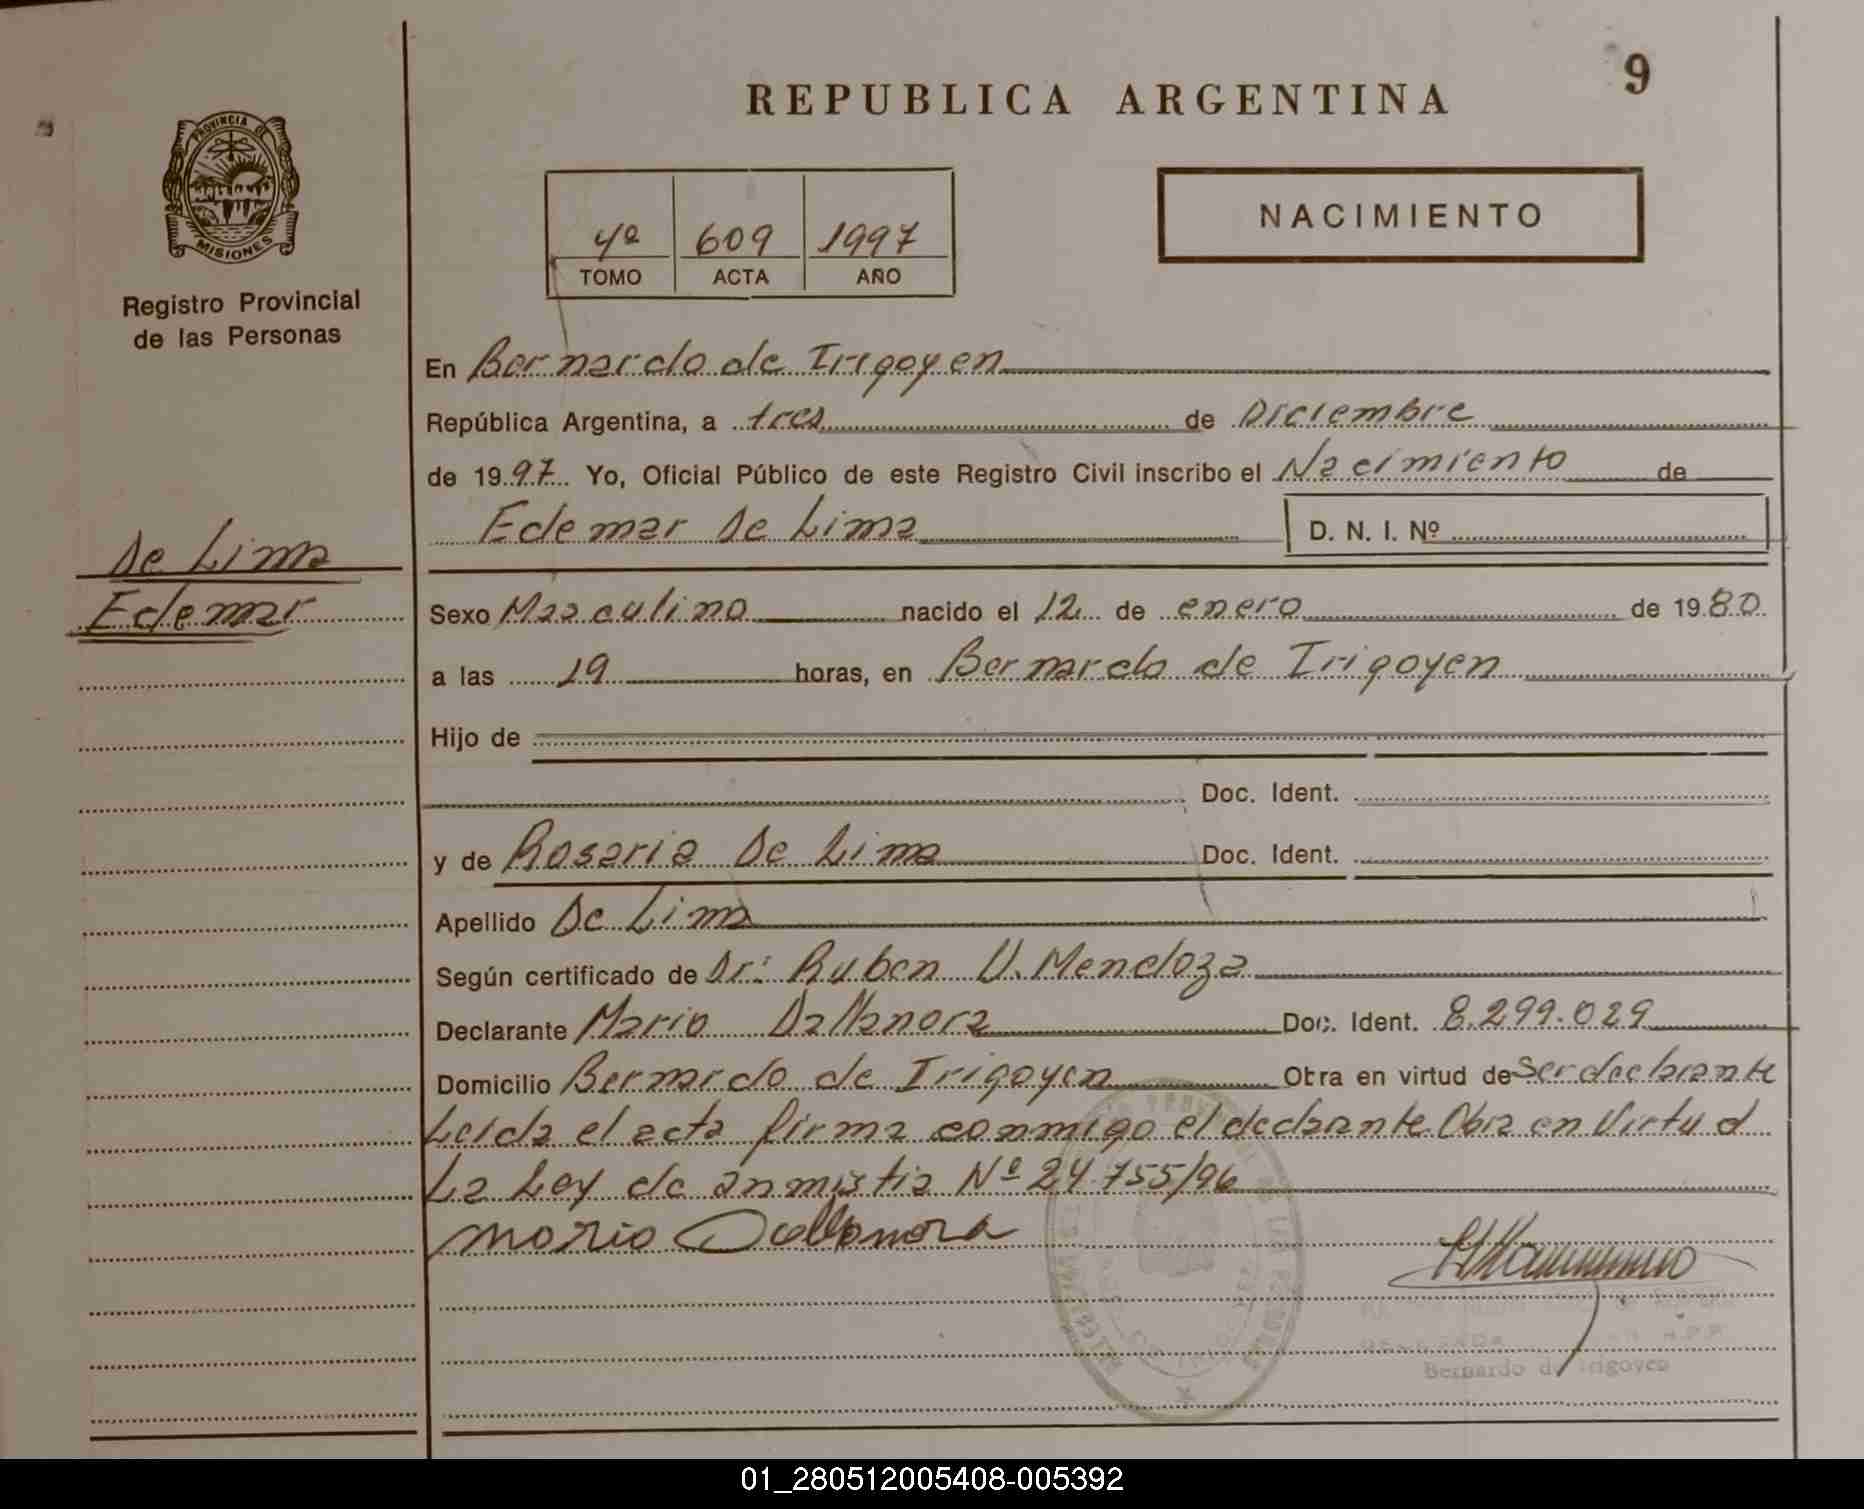 9
REPUBLICA ARGENTINA
PROVINCIA DE
MISIONES
Registro Provincial
de las Personas
NACIMIENTO
4º 609 1997
TOMO ACTA AÑO
En Bernardo de Irigoyen
República Argentina, a tres de Diciembre
de 1997 Yo, Oficial Público de este Registro Civil inscribo el Nacimiento de
Edemar De Lima D. N. I. Nº
De Lima
Edemar
Sexo Masculino nacido el 12 de enero de 1980
a las 19 horas, en Bernardo de Irigoyen
Hijo de
Doc. Ident.
y de Rosaria De Lima Doc. Ident.
Apellido De Lima
Según certificado de Dr: Ruben U. Mendoza
Declarante Mario Dallanora Doc. Ident. 8.299.029
Domicilio Bernardo de Irigoyen Obra en virtud de Ser declarante
Leida el acta firma conmigo el declarante Obra en Virtud
La Ley de anmistia Nº 24.755/96
Mario Dallanora
Bernardo de Irigoyen
01_280512005408-005392